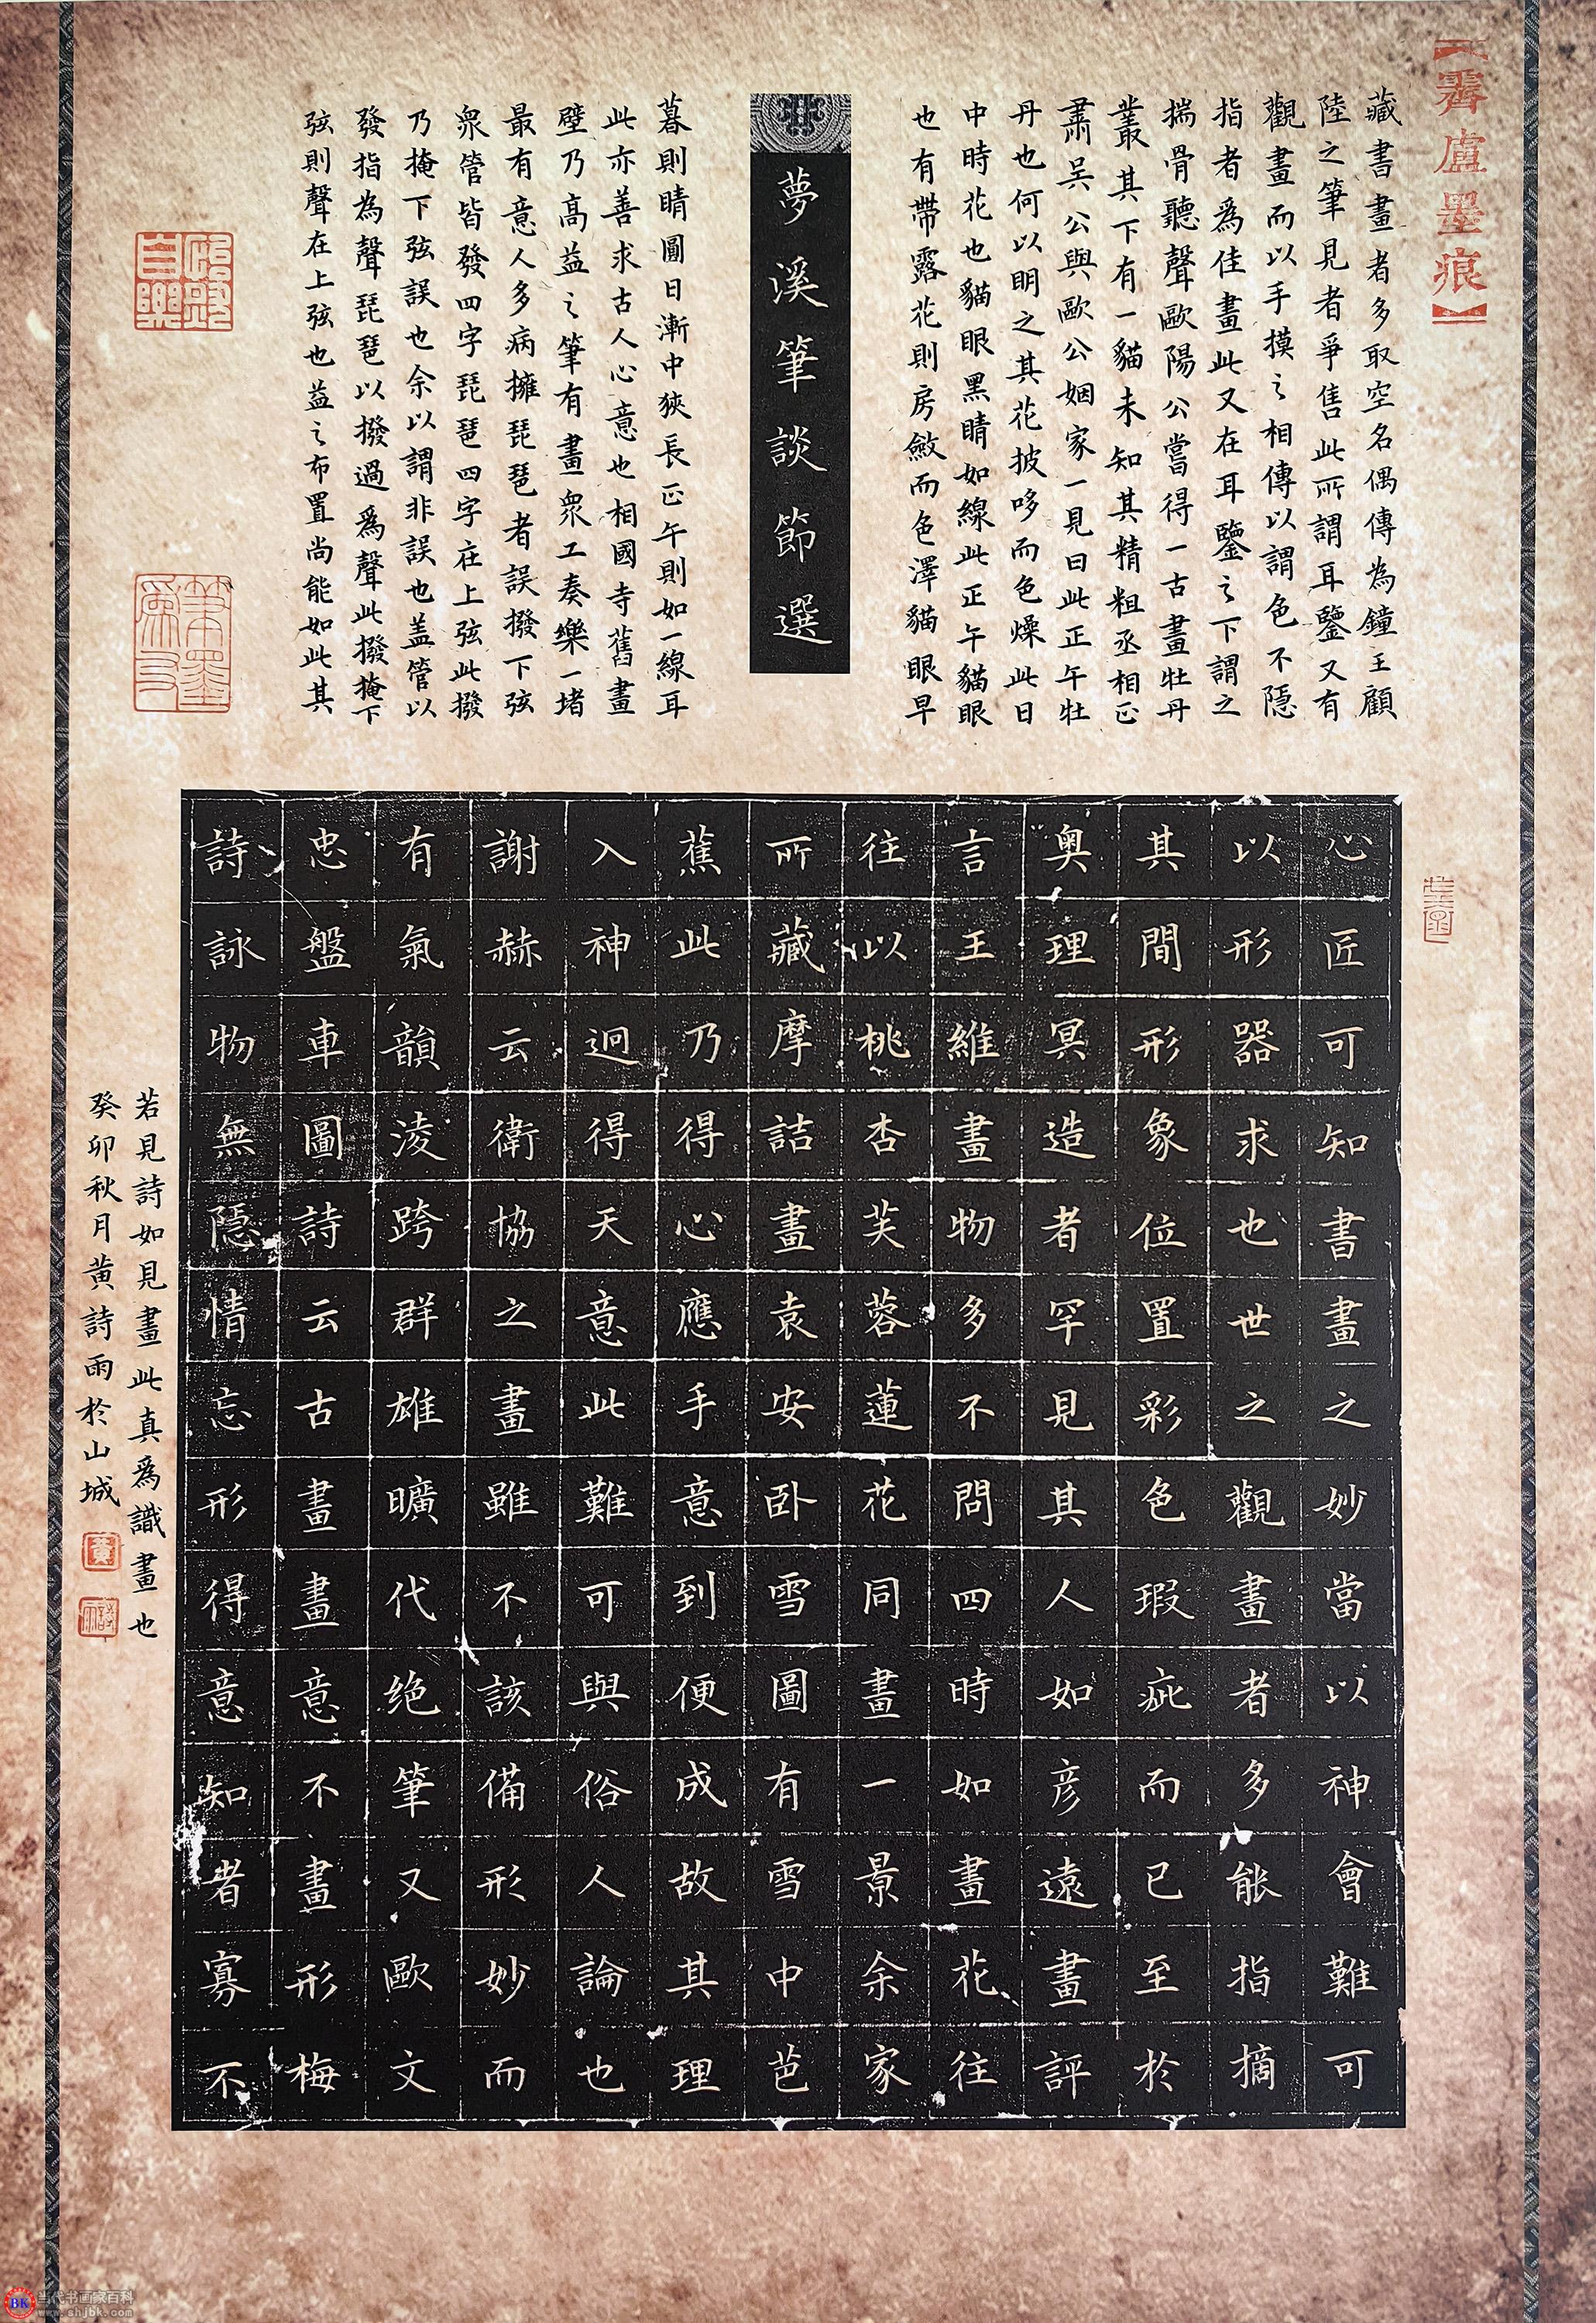 【霽盧墨痕】
藏書畫者多取空名偶傳為鐘王顧
陸之筆見者爭售此所謂耳鑒又有
觀畫而以手摸之相傳以謂色不隱
指者爲佳畫此又在耳鑒之下謂之
揣骨聽聲歐陽公嘗得一古畫牡丹
叢其下有一貓未知其精粗丞相正
肅吳公與歐公姻家一見曰此正午牡
丹也何以明之其花披哆而色燥此日
中時花也貓眼黑睛如線此正午貓眼
也有帶露花則房斂而色澤貓眼早
夢溪筆談節選
暮則睛圓日漸中狹長正午則如一線耳
此亦善求古人心意也相國寺舊畫
壁乃高益之筆有畫衆工奏樂一堵
最有意人多病擁琵琶者誤撥下弦
衆管皆發四字琵琶四字在上弦此撥
乃掩下弦誤也余以謂非誤也盖管以
發指為聲琵琶以撥過爲聲此撥掩下
弦則聲在上弦也益之布置尚能如此其
心匠可知書畫之妙當以神會難可
以形器求也世之觀畫者多能指摘
其間形象位置彩色瑕疵而已至於
奥理冥造者罕見其人如彦遠畫評
言王維畫物多不問四時如畫花往
往以桃杏芙蓉蓮花同畫一景余家
所藏摩詰畫袁安卧雪圖有雪中芭
蕉此乃得心應手意到便成故其理
入神迥得天意此難可與俗人論也
謝赫云衛協之畫雖不該備形妙而
有氣韻凌跨群雄曠代绝筆又歐文
忠盤車圖詩云古畫畫意不畫形梅
詩詠物無隱情忘形得意知者寡不
若見詩如見畫此真爲識畫也
癸卯秋月黄詩雨於山城
筆墨
自樂
黄
詩雨
BK 当代书画家百科
www.shjbk.com